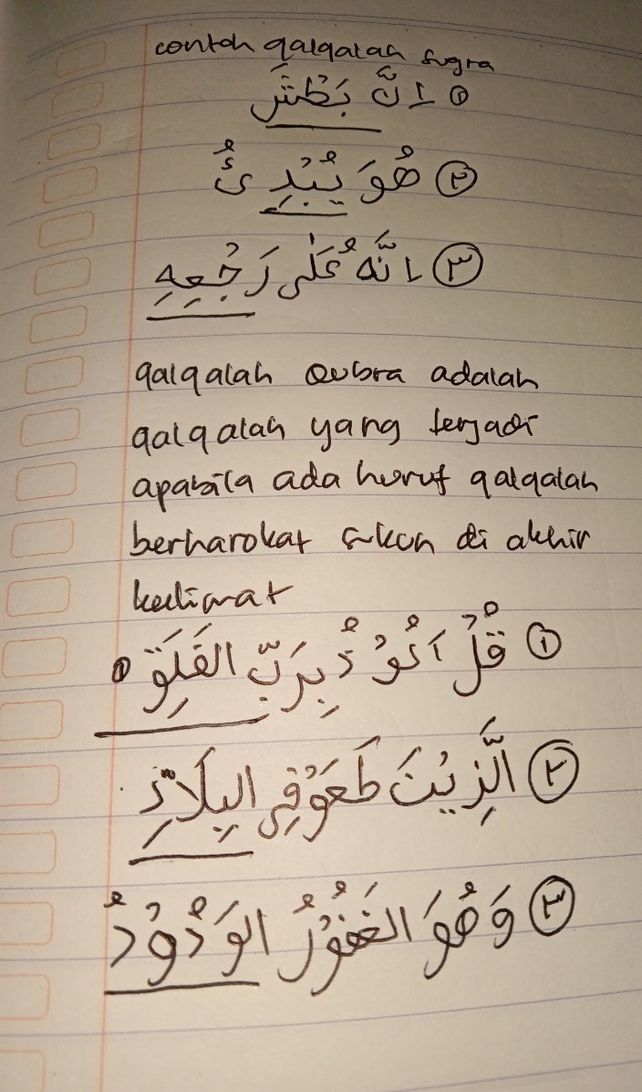 contoh qalqalah sugra
① اِنَّ بَطْشَ
② هُوَ يُبْدِئُ
③ اِنَّهٗ عَلٰى رَجْعِهٖ
qalqalah Qubra adalah
qalqalah yang terjadi
apabila ada huruf qalqalah
berharokat sukun di akhir
kalimat
① قُلْ اَعُوْذُ بِرَبِّ الفَلَقِ
② الَّذِيْنَ طَغَوْا فِى البِلَادِ
③ وَهُوَ الغَفُوْرُ الوَدُوْدُ